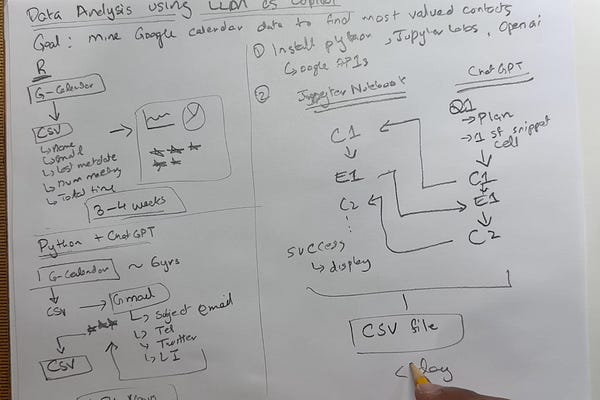 Data Analysis using LLM as Copilot
Goal: Mine Google calendar data to find most valued contacts
R
G-Calendar
CSV
↳ name
↳ email
↳ last met date
↳ num meeting
↳ Total time
3-4 weeks
Python + ChatGPT
G-Calendar ~ 6yrs
CSV
Gmail
↳ Subject email
↳ Tel
↳ Twitter
↳ LI
CSV
① Install python, Jupyter Labs, Openai
↳ Google APIs
②
Jupyter Notebook
C1
E1
C2
success
↳ display
ChatGPT
Q1
→ Plan
→ 1st snippet
cell
C1
E1
C2
CSV file
< 1 day